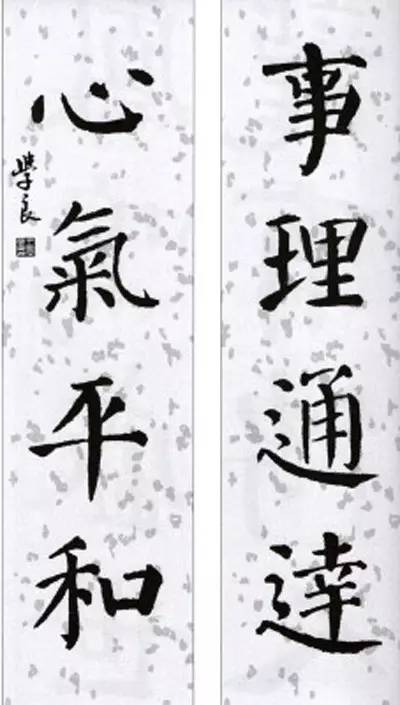 事理通達
心氣平和
學良